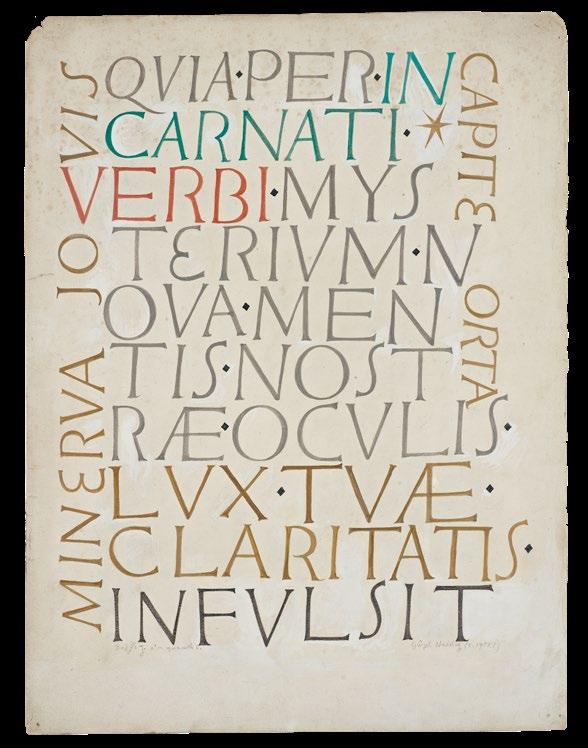 QVIA·PER·IN
CARNATI·*
VERBI·MYS
TERIVM·N
OVA·MEN
TIS·NOST
RÆ·OCVLIS·
LVX·TVÆ·
CLARITATIS·
INFVLSIT
MINERVA JOVIS
CAPITE ORTA